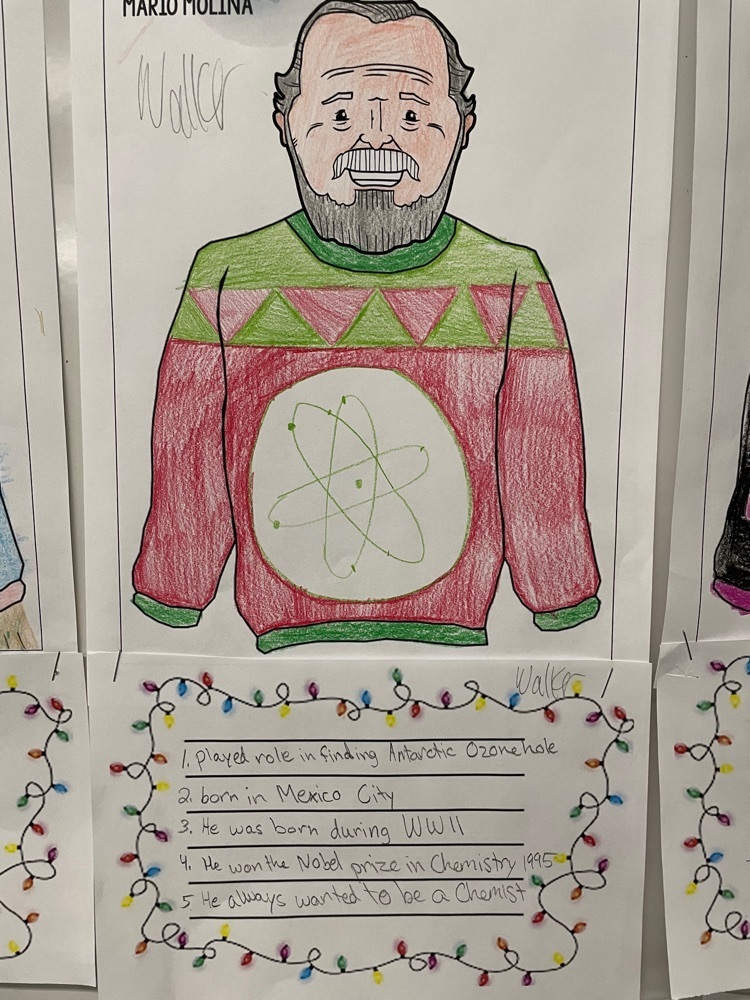 MARIO MOLINA
Walker
Walker
1. played role in finding Antarctic Ozone hole
2. born in Mexico City
3. He was born during WWII
4. He won the Nobel prize in Chemistry 1995
5 He always wanted to be a Chemist